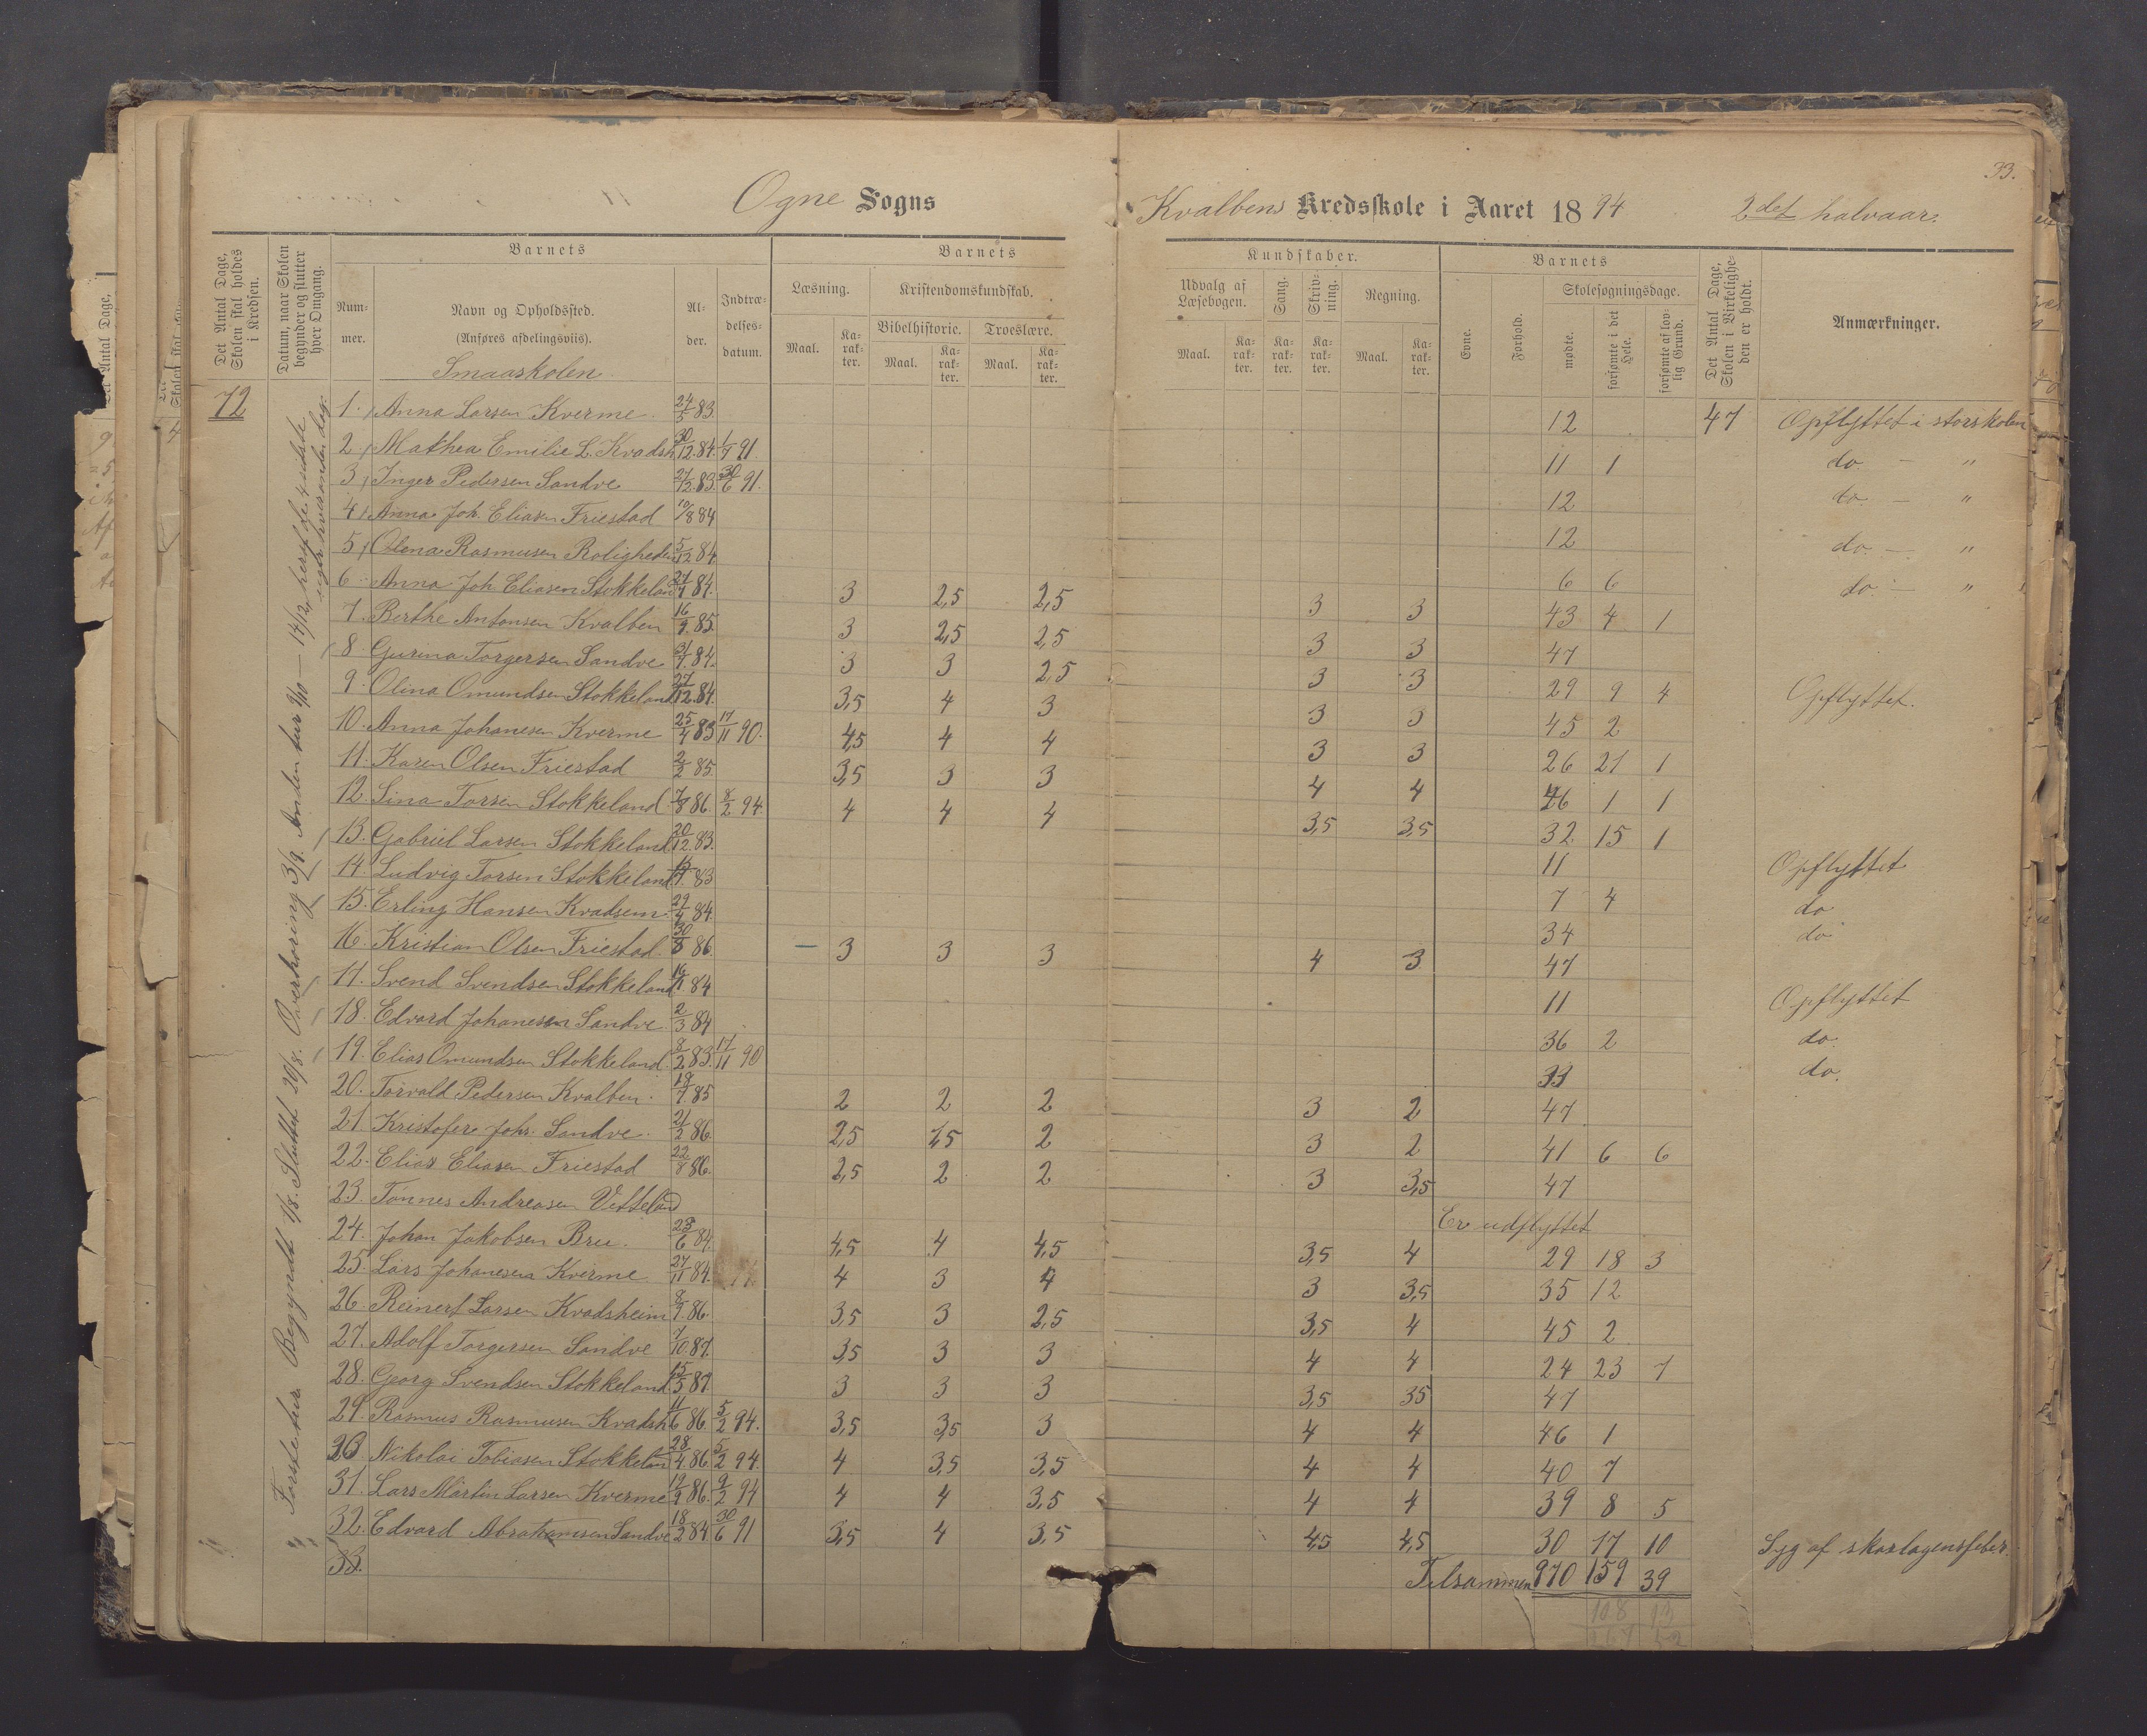 33.
Ogne Sogns Kvalbens Kredsskole i Aaret 1894 2det halvaar.
Det Antal Dage, Skolen skal holdes i Kredsen.
Datum, naar Skolen begynder og slutter hver Omgang.
Barnets
Nummer.
Navn og Opholdssted.
(Anføres afdelingsviis).
Smaaskolen
Alder.
Indtrædelsesdatum.
Barnets
Læsning.
Kristendomskundskab.
Bibelhistorie. Troeslære.
Maal. Karakter. Maal. Karakter. Maal. Karakter.
Kundskaber.
Udvalg af Læsebogen. Sang. Skrivning. Regning.
Maal. Karakter. Karakter. Karakter. Maal. Karakter.
Barnets
Evne. Forhold. Skolesøgningsdage.
mødte. forsømte i det Hele. forsømte af lovlig Grund.
Det Antal Dage, Skolen i Virkeligheden er holdt.
Anmærkninger.
72
Første tur Begyndt 1/8. Sluttet 20/8. Overhøring 3/9. Anden tur 9/10 — 14/12, heraf de 4 sidste
1. Anna Larsen Kverme 24/5 83. 12 47 Opflyttet i storskolen
2 Mathea Emilie L. Kvadsh 30/12 84. 1/7 91. 11 1 do. — "
3 Inger Pedersen Sandve 27/12 83. 30/6 91. 12 do. — "
4 Anna Joh. Eliasen Friestad 10/8 84 12 do. — "
5 Olena Rasmusen Roligheden 5/12 84. 6 6 do. — "
6 Anna Joh Eliasen Stokkeland 84. 3 2,5 2,5 3 3 43 4 1
7. Berthe Antonsen Kvalben 16/9 85. 3 2,5 2,5 3 3 47
8 Gurina Torgersen Sandve 31/7 84. 3 3 2,5 3 3 29 9 4 Opflyttet.
9. Olina Omundsen Stokkeland 27/12 84. 3,5 4 3 3 3 45 2
10. Anna Johanesen Kverme 83 17/11 90. 4,5 4 4 3 3 26 21 1
11. Karen Olsen Friestad 2/2 85. 3,5 3 3 4 4 46 1 1
12. Sina Torsen Stokkeland 7/8 86. 8/2 94. 4 4 4 3,5 3,5 32 15 1
13. Gabriel Larsen Stokkeland 20/12 83. 11 Opflyttet
14. Ludvig Torsen Stokkeland 83 7 4 do
15. Erling Hansen Kvadsem 84. 34 do
16. Kristian Olsen Friestad 30/8 86 3 3 3 4 3 47
17. Svend Svendsen Stokkeland 84 11 Opflyttet
18. Edvard Johanesen Sandve 2/3 84 36 2 do.
19. Elias Omundsen Stokkeland 8/2 83. 17/11 90 33 do.
20. Torvald Pedersen Kvalben. 85 2 2 2 3 2 47
21 Kristofer Joh. Sandve. 21/2 86. 2,5 2 3 2 41 6 6
22. Elias Eliasen Friestad 22/8 86. 2,5 2 2 3 3,5 47
23. Tønnes Andreasen Vetteland Er udflyttet
24. Johan Jakobsen Bru. 23/6 84. 4,5 4 4,5 3,5 4 29 18 3
25. Lars Johanesen Kverme 27/11 84. 4 3 4 3 3,5 35 12
26. Reinert Larsen Kvadsheim 86. 3,5 3 2,5 3,5 4 45 2
27. Adolf Torgersen Sandve 7/10 87. 3,5 3 3 4 4 24 23 7
28. Georg Svendsen Stokkeland 15/5 87 3 3 3 3,5 35 47
29. Rasmus Rasmusen Kvadsh 11/6 86. 5/2 94. 3,5 3,5 3 4 4 46 1
30 Nikolai Tobiasen Stokkelan 28/4 86. 5/2 94. 4 3,5 3,5 4 4 40 7
31. Lars Martin Larsen Kverme 19/9 86. 9/2 94 4 4 3,5 4 4 39 8 5
32. Edvard Abrahamsen Sandve 18/2 84. 30/6 91 3,5 4 3,5 4,5 4,5 30 17 10 Syg af skarlagensfeber.
33.
Tilsammen 970 159 39
108 13
267 52